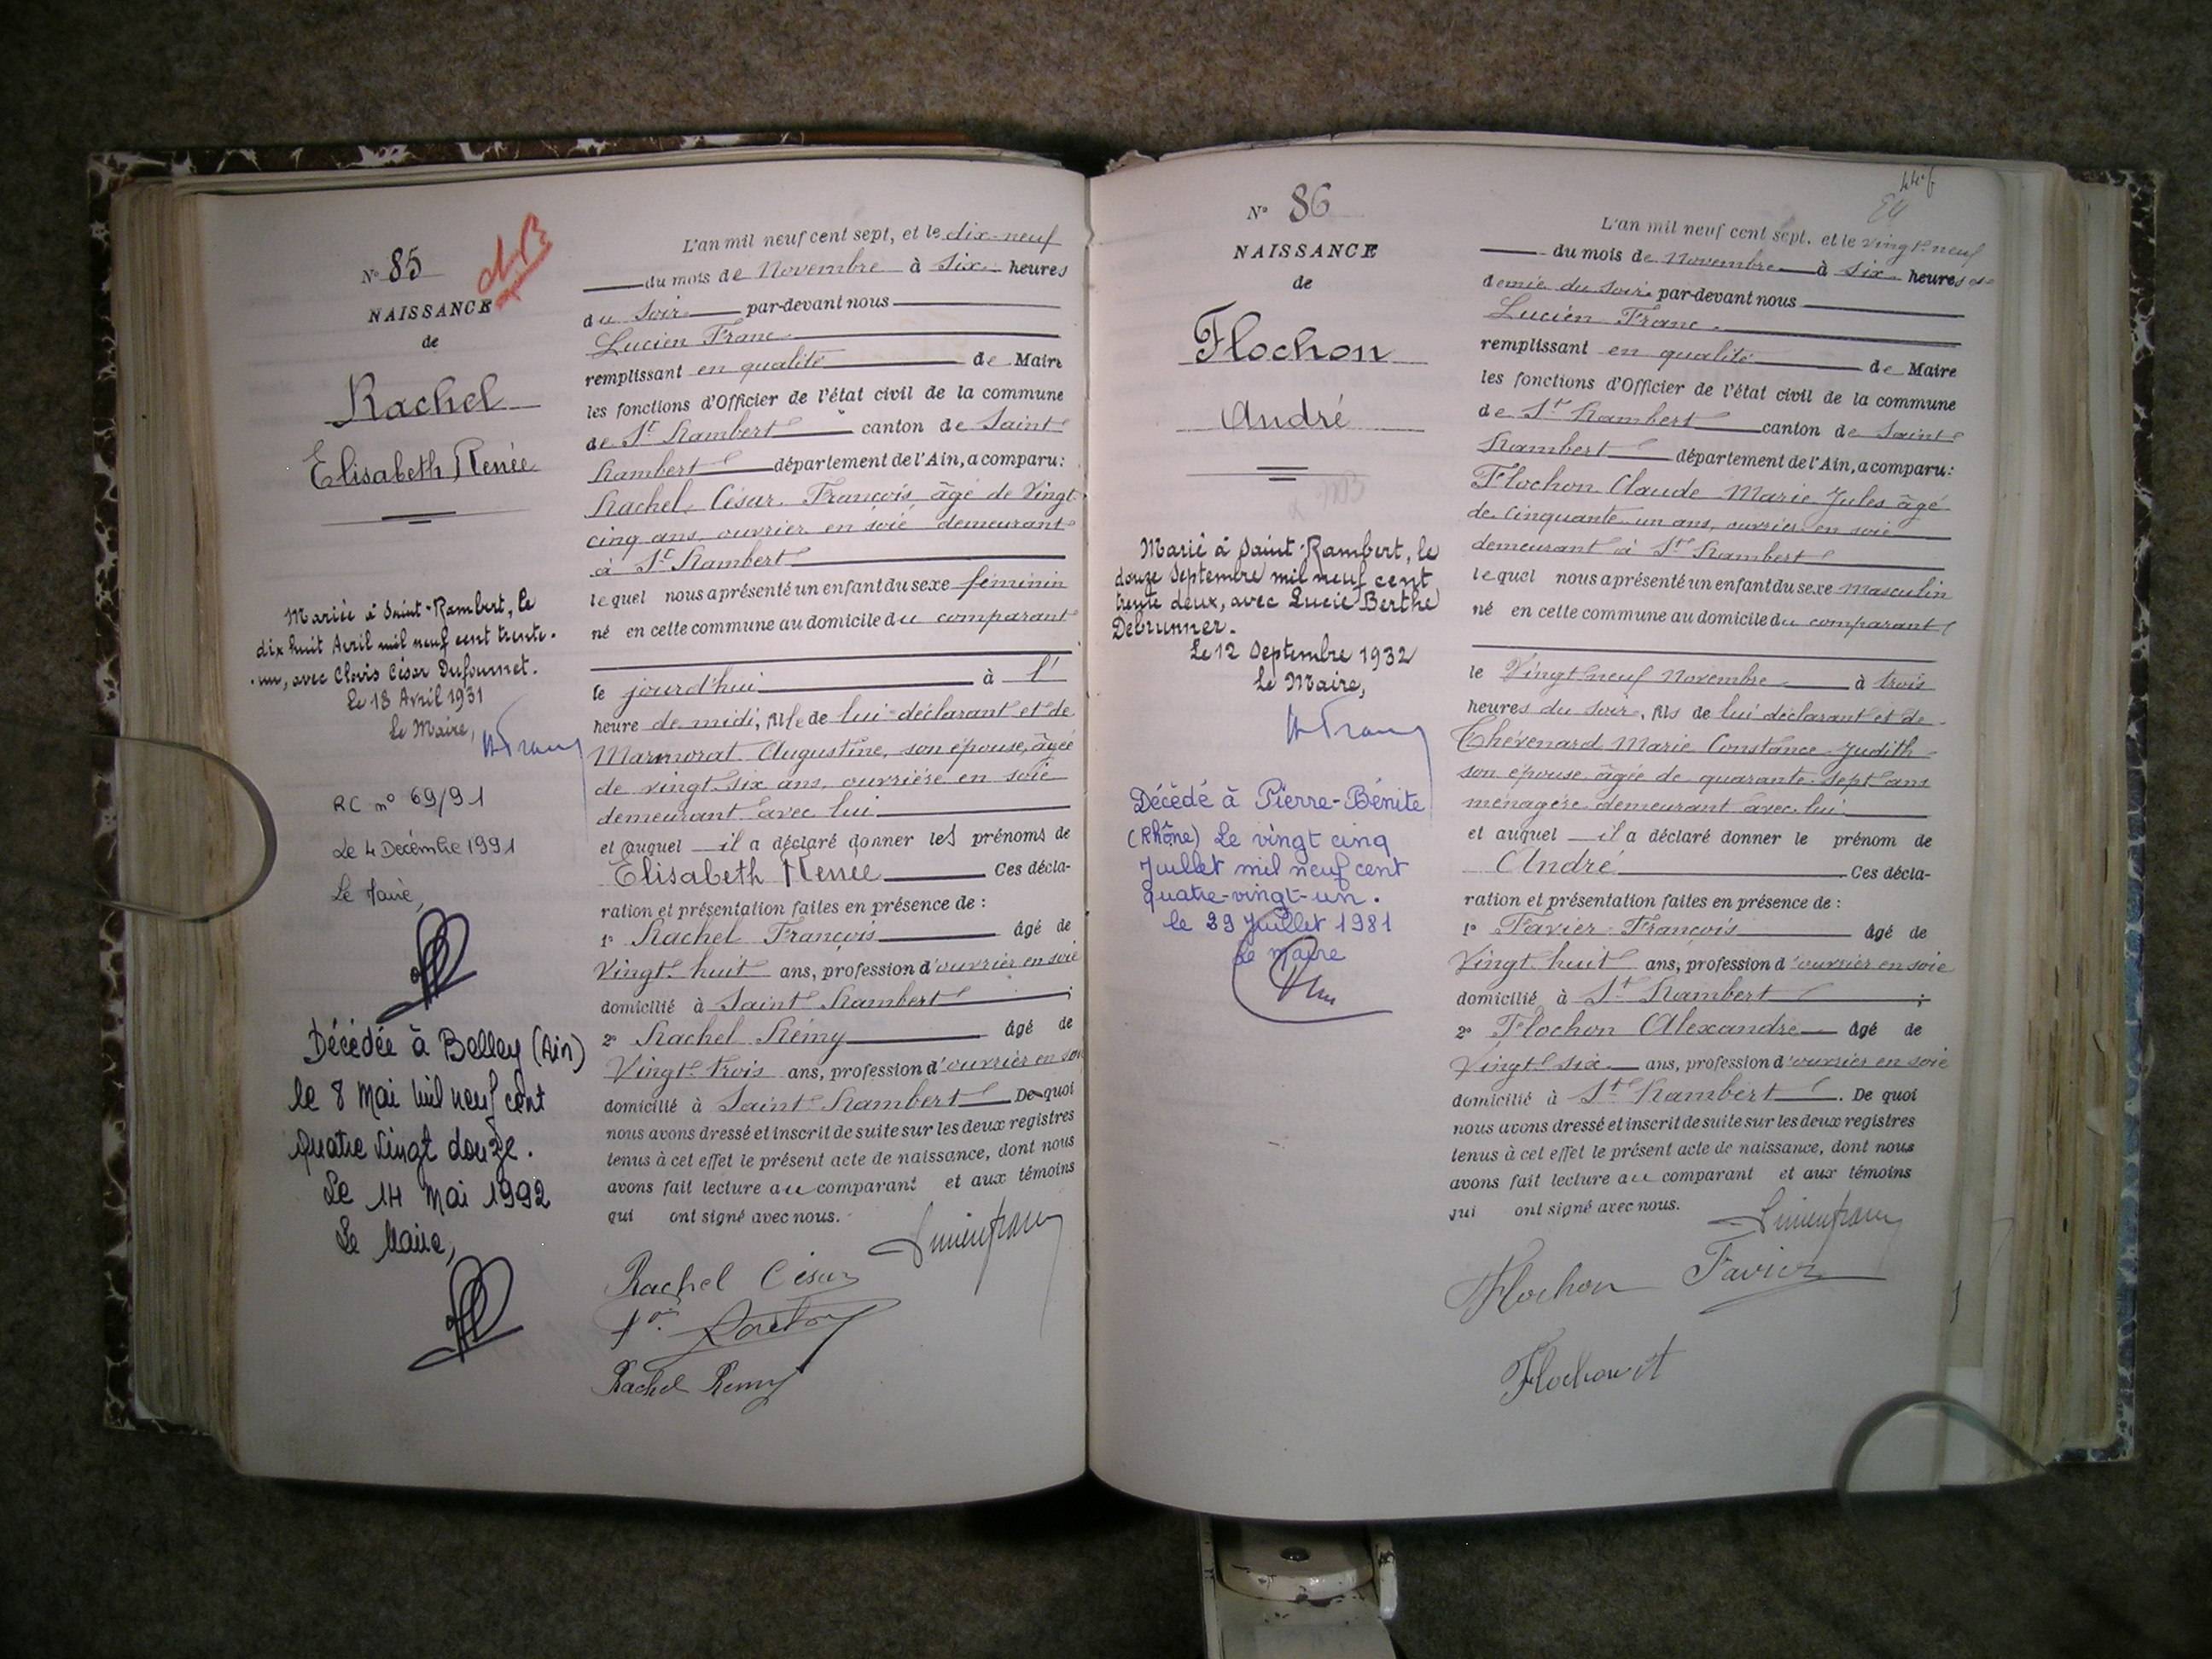 N° 85
NAISSANCE
de
Rachel
Elisabeth Renée
Mariée à Saint-Rambert, le
dix huit Avril mil neuf cent trente-
-un, avec Clovis César Dufournet.
Le 18 Avril 1931
Le Maire,
RC n° 69/91
Le 4 Décembre 1991
Le Maire,
Décédée à Belley (Ain)
le 8 Mai mil neuf cent
quatre vingt douze.
Le 14 Mai 1992
Le Maire,
L'an mil neuf cent sept, et le dix-neuf
du mois de Novembre à six heures
du soir par-devant nous
Lucien Franc
remplissant en qualité de Maire
les fonctions d'Officier de l'état civil de la commune
de St Rambert canton de Saint
Rambert département de l'Ain, a comparu:
Rachel, César, François, âgé de vingt
cinq ans, ouvrier en soie demeurant
à St Rambert
lequel nous a présenté un enfant du sexe féminin
né en cette commune au domicile du comparant
le jourd'hui à l'
heure de midi, fille de lui déclarant et de
Marmorat Augustine, son épouse, âgée
de vingt six ans, ouvrière en soie
demeurant avec lui
et auquel il a déclaré donner les prénoms de
Elisabeth Renée Ces décla-
ration et présentation faites en présence de :
1° Rachel François âgé de
Vingt huit ans, profession d'ouvrier en soie
domicilié à Saint Rambert ;
2° Rachel Remy âgé de
Vingt trois ans, profession d'ouvrier en soie
domicilié à Saint Rambert De quoi
nous avons dressé et inscrit de suite sur les deux registres
tenus à cet effet le présent acte de naissance, dont nous
avons fait lecture au comparant et aux témoins
qui ont signé avec nous.
Rachel César
Rachel Remy
N° 86
NAISSANCE
de
Flochon
André
Marié à Saint-Rambert, le
douze Septembre mil neuf cent
trente deux, avec Lucie Berthe
Debrunner.
Le 12 Septembre 1932
Le Maire,
Décédé à Pierre-Bénite
(Rhône) Le vingt cinq
Juillet mil neuf cent
quatre-vingt-un.
le 29 Juillet 1981
Le Maire
L'an mil neuf cent sept, et le vingt-neuf
du mois de Novembre à six heures et
demie du soir par-devant nous
Lucien Franc.
remplissant en qualité de Maire
les fonctions d'Officier de l'état civil de la commune
de St Rambert canton de Saint
Rambert département de l'Ain, a comparu:
Flochon Claude Marie Jules âgé
de cinquante un ans, ouvrier en soie
demeurant à St Rambert
lequel nous a présenté un enfant du sexe masculin
né en cette commune au domicile du comparant
le Vingt neuf Novembre à trois
heures du soir, fils de lui déclarant et de
Thévenard Marie Constance Judith
son épouse âgée de quarante sept ans
ménagère demeurant avec lui
et auquel il a déclaré donner le prénom de
André Ces décla-
ration et présentation faites en présence de :
1° Favier François âgé de
Vingt huit ans, profession d'ouvrier en soie
domicilié à St Rambert ;
2° Flochon Alexandre âgé de
Vingt six ans, profession d'ouvrier en soie
domicilié à St Rambert. De quoi
nous avons dressé et inscrit de suite sur les deux registres
tenus à cet effet le présent acte de naissance, dont nous
avons fait lecture au comparant et aux témoins
qui ont signé avec nous.
Flochon Favier
Flochon